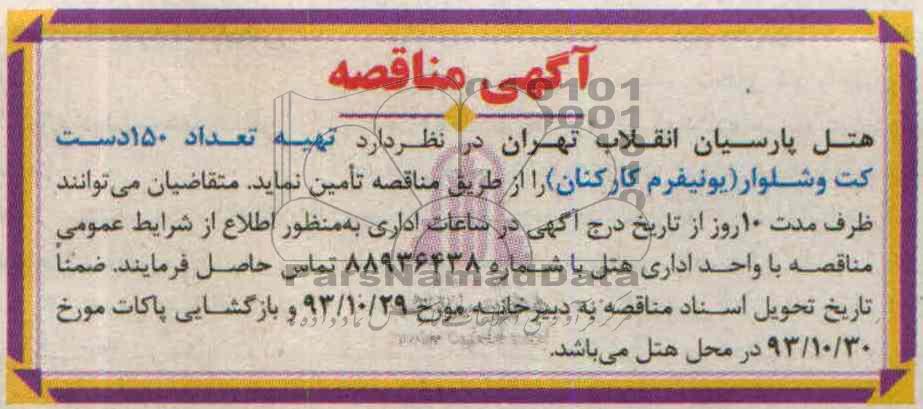 آگهی مناقصه
هتل پارسیان انقلاب تهران در نظر دارد تهیه تعداد ۱۵۰دست
کت وشلوار(یونیفرم کارکنان)را از طریق مناقصه تأمین نماید. متقاضیان می‌توانند
ظرف مدت ۱۰روز از تاریخ درج آگهی در ساعات اداری به‌منظور اطلاع از شرایط عمومی
مناقصه با واحد اداری هتل با شماره ۸۸۹۳۶۴۳۸ تماس حاصل فرمایند. ضمناً
ParsNamadData
تاریخ تحویل اسناد مناقصه به دبیرخانه مورخ ۹۳/۱۰/۲۹ و بازگشایی پاکات مورخ
۹۳/۱۰/۳۰ در محل هتل می‌باشد.